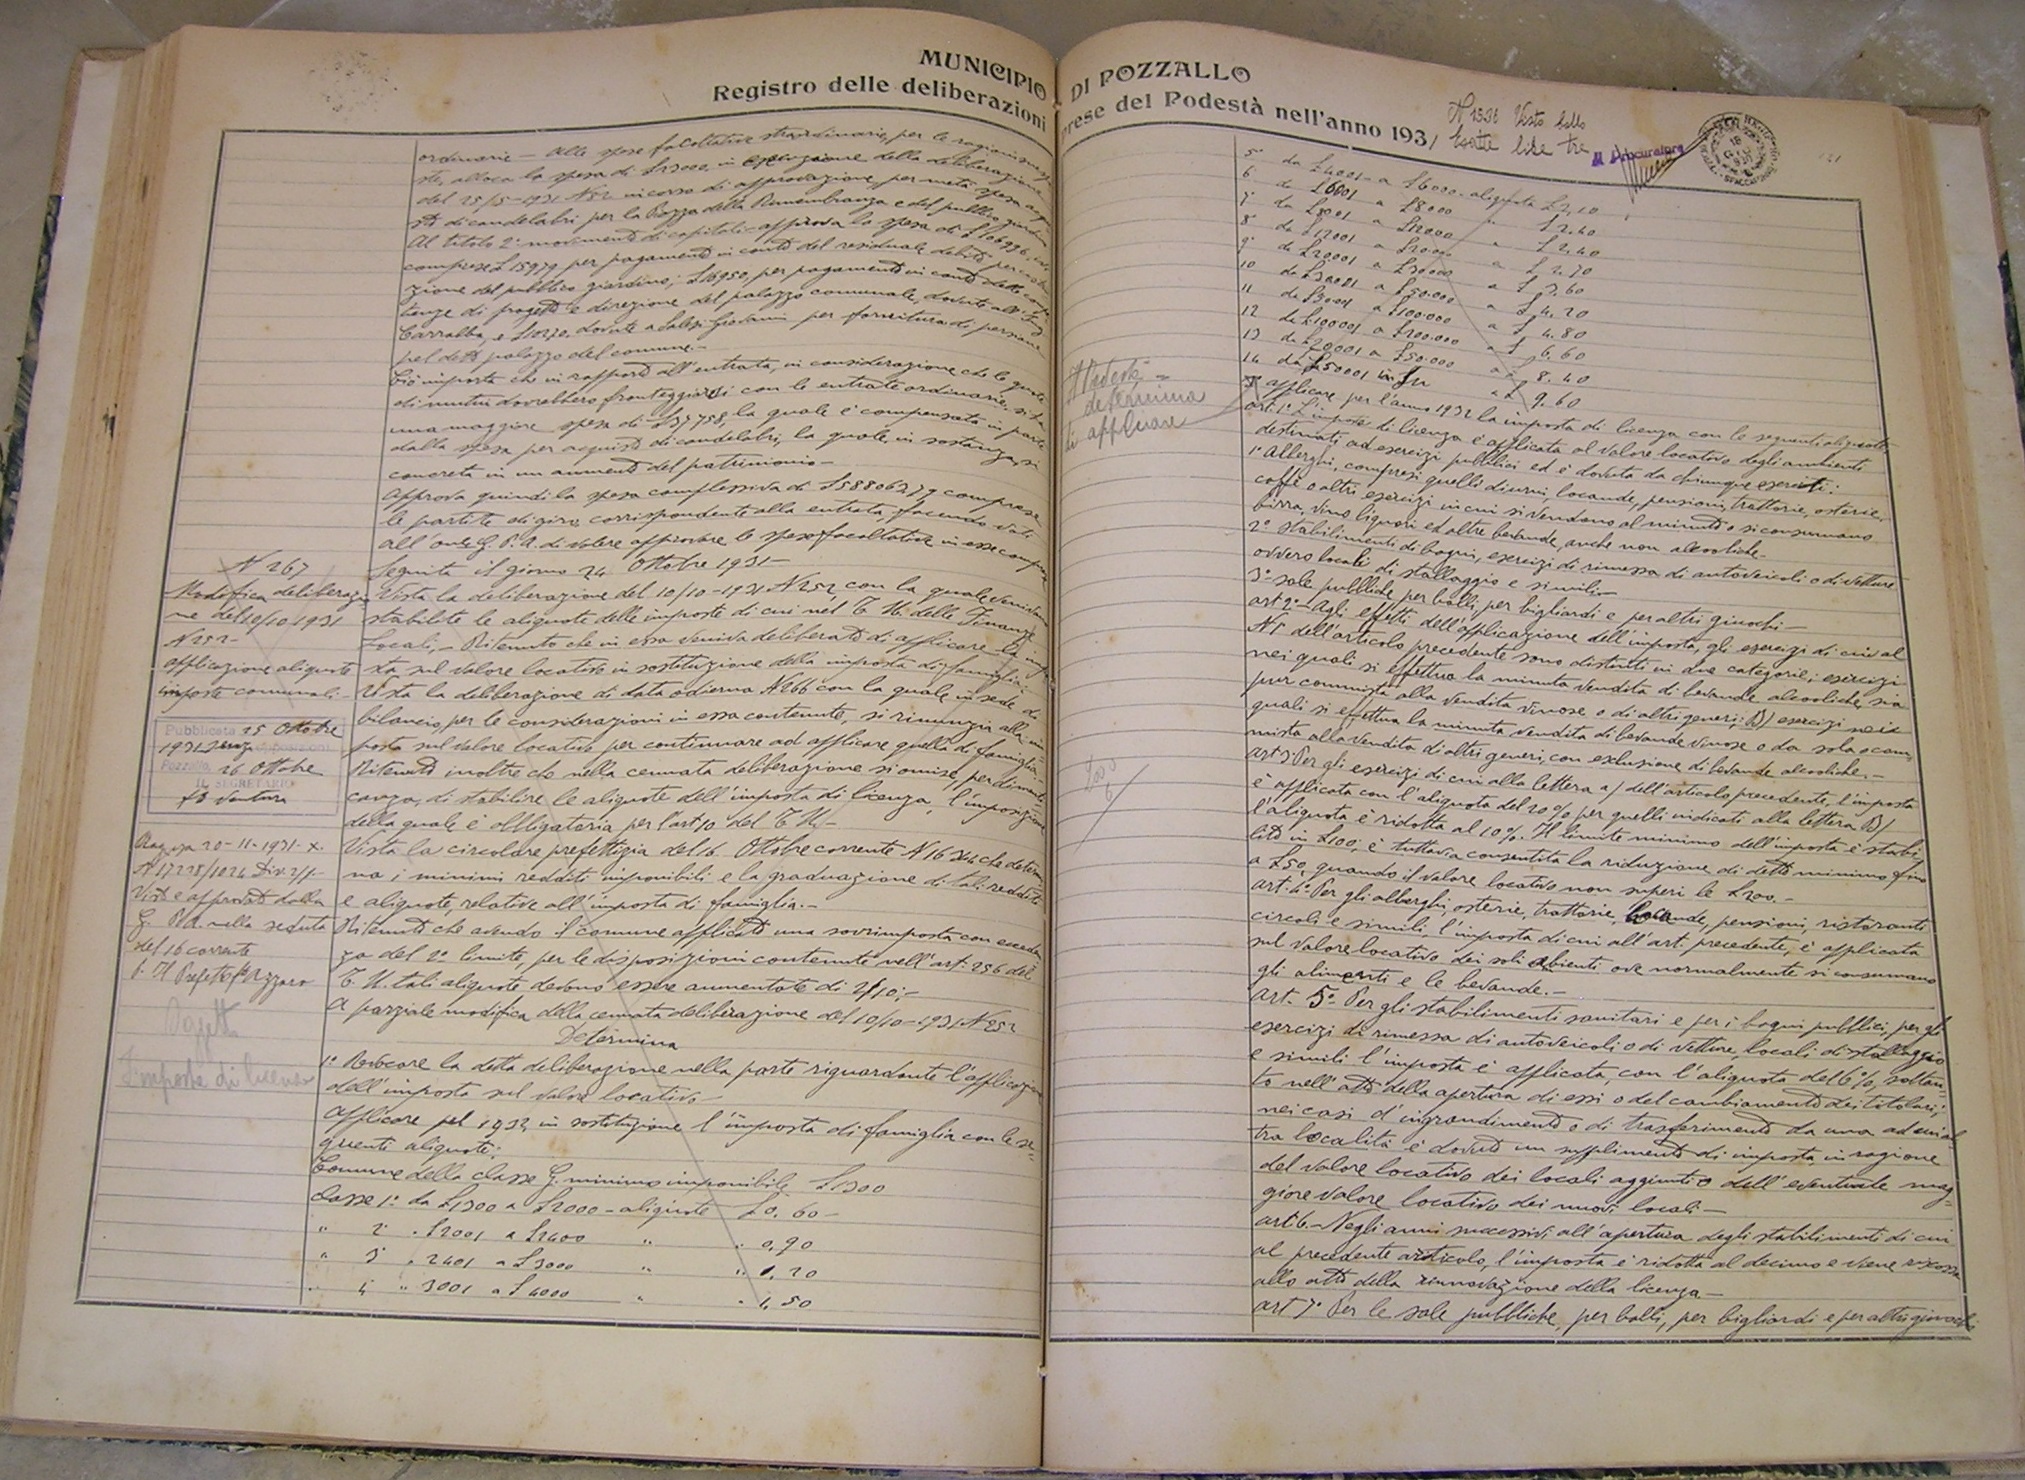 MUNICIPIO DI POZZALLO
Registro delle deliberazioni prese del Podestà nell'anno 1931
ordinarie - Alle spese facoltative straordinarie, per le ragioni
alloca la spesa di in esecuzione della deliberazione
del 25/5-1931 N 52 in corso di approvazione, per metà spesa
di candelabri per la Piazza della Rimembranza e del pubblico giardino
Al titolo 2° movimento di capitali approva la spesa di
comprese £ 15979 per pagamento in conto del residuale debito per
zione del pubblico giardino; £ 16950, per pagamento in conto delle
tenze di progetto e direzione del palazzo comunale, dovute all'Ing
Carralba, e dovute a Giovanni per fornitura di persiane
pel detto palazzo del comune.-
Ciò importa che in rapporto all'entrata, in considerazione che le quote
di mutui dovrebbero fronteggiarsi con le entrate ordinarie, si ha
una maggiore spesa di £ 37758, la quale è compensata in parte
dalla spesa per acquisto di candelabri, la quale, in sostanza, si
concreta in un aumento del patrimonio-
Approva quindi la spesa complessiva di £ 588063,79 comprese
le partite di giro, corrispondente alla entrata, facendo voti
all'on.le G. P. A. di volere approvare le spese facoltative in esse comprese
Seguita il giorno 24 Ottobre 1931-
N 267
Modifica delibera-
ne del 10/10 1931
N 252-
applicazione aliquote
imposte comunali.-
Pubblicata 25 Ottobre
1931 senza opposizioni
Pozzallo, 26 Ottobre
IL SEGRETARIO
f° Ventura
Ragusa 20-11-1931-X.
N 17228/1024 Div 2/1-
Visto e approvato dalla
G. P. A. nella seduta
del 16 corrente
p. Il Prefetto f° Azzaro
Imposta di licenza
Vista la deliberazione del 10/10-1931 N 252, con la quale venivano
stabilite le aliquote delle imposte di cui nel T. U. delle Finanze
Locali,- Ritenuto che in essa veniva deliberato di applicare la impo
sta sul valore locativo in sostituzione della imposta di famiglia
Vista la deliberazione di data odierna N 266 con la quale in sede di
bilancio, per le considerazioni in essa contenute, si rinunzia alla im
posta sul valore locativo per continuare ad applicare quella di famiglia.-
Ritenuto inoltre che nella cennata deliberazione si omise, per dimenti
canza, di stabilire le aliquote dell'imposta di licenza, l'imposizione
della quale è obbligatoria per l'art 10 del T. U.-
Vista la circolare prefettizia del 16 Ottobre corrente N 16344 che determi
na i minimi redditi imponibili e la graduazione di tali redditi
e aliquote, relative all'imposta di famiglia.-
Ritenuto che avendo il comune applicato una sovrimposta con eccede
za del 2° limite, per le disposizioni contenute nell'art. 256 del
T. U. tali aliquote devono essere aumentate di 2/10;-
A parziale modifica della cennata deliberazione del 10/10-1931 N 252
Determina
1° Revocare la detta deliberazione nella parte riguardante l'applicazione
dell'imposta sul valore locativo-
Applicare pel 1932, in sostituzione l'imposta di famiglia con le se-
guenti aliquote:
Comune della classe G. minimo imponibile £ 1300
Classe 1° da £ 1300 a £ 2000 - aliquote £ 0,60-
" 2 " £ 2001 a £ 2400 " " 0,90
" 3 " 2401 a £ 3000 " " 1,20
" 4 " 3001 a £ 4000 " " 1,50
N 1536 Visto bollo
Esatte lire tre
Il Procuratore
5° da £ 4001- a £ 6000- aliquota £ 2,10
6 da £ 6001 a £ 8000 " £ 2.40
7° da £ 8001 a £ 12000 " £ 2.40
8° da £ 12001 a £ 20000 a £ 2.70
9° da £ 20001 a £ 30000 a £ 3.60
10 da £ 30001 a £ 50.000 a £ 4.20
11 da £ 50001 a £ 100.000 a £ 4.80
12 da £ 100001 a £ 200.000 a £ 6.60
13 da £ 200001 a £ 50.000 a £ 8.40
14 da £ 50001 in su a £ 9.60
Il Podestà =
determina
di applicare
3° applicare per l'anno 1932 la imposta di licenza con le seguenti aliquote
art. 1° L'imposta di licenza è applicata al valore locativo degli ambienti
destinati ad esercizi pubblici ed è dovuta da chiunque eserciti:
1° Alberghi, compresi quelli diurni, locande, pensioni, trattorie, osterie,
caffè o altri esercizi in cui si vendono al minuto o si consumano
birra, vino, liquori ed altre bevande, anche non alcooliche-
2° stabilimenti di bagni, esercizi di rimessa di autoveicoli o di vetture
ovvero locali di stallaggio e simili-
3° sale pubbliche per balli, per bigliardi e per altri giuochi-
art 2°- Agli effetti dell'applicazione dell'imposta, gli esercizi di cui al
N 1° dell'articolo precedente sono distinti in due categorie; esercizi
nei quali si effettua la minuta vendita di bevande alcooliche, sia
pur commista alla vendita vinose o di altri generi; B) esercizi nei
quali si effettua la minuta vendita di bevande vinose o da sola o com
mista alla vendita di altri generi, con esclusione di bevande alcooliche.-
art 3° Per gli esercizi di cui alla lettera a) dell'articolo precedente, l'imposta
è applicata con l'aliquota del 20% per quelli indicati alla lettera B)
l'aliquota è ridotta al 10%. Il limite minimo dell'imposta è stabi
lito in £ 100; è tuttavia consentita la riduzione di detto minimo fino
a £ 50, quando il valore locativo non superi le £ 200.-
art. 4° Per gli alberghi, osterie, trattorie, locande, pensioni, ristoranti
circoli e simili, l'imposta di cui all'art. precedente, è applicata
sul valore locativo dei soli abienti ove normalmente si consumano
gli alimenti e le bevande.-
art. 5°- Per gli stabilimenti sanitari e per i bagni pubblici, per gli
esercizi di rimessa di autoveicoli o di vetture, locali di stallaggio
e simili l'imposta è applicata, con l'aliquota del 6%, soltan-
to nell'atto della apertura di essi o del cambiamento dei titolari;
nei casi d'ingrandimento o di trasferimento da una ad un'al
tra località è dovuto un supplimento di imposta, in ragione
del valore locativo dei locali aggiunti o dell'eventuale mag-
giore valore locativo dei nuovi locali-
art 6.- Negli anni successivi all'apertura degli stabilimenti di cui
al precedente articolo, l'imposta è ridotta al decimo e viene riscossa
allo atto della rinnovazione della licenza-
art 7° Per le sale pubbliche, per balli, per bigliardi e per altri giuochi